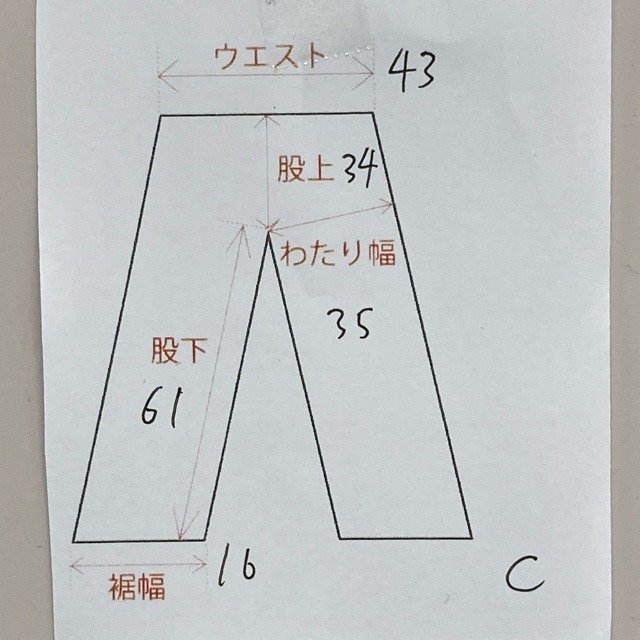 ウエスト 43
股上 34
わたり幅
35
股下
61
裾幅 16
C